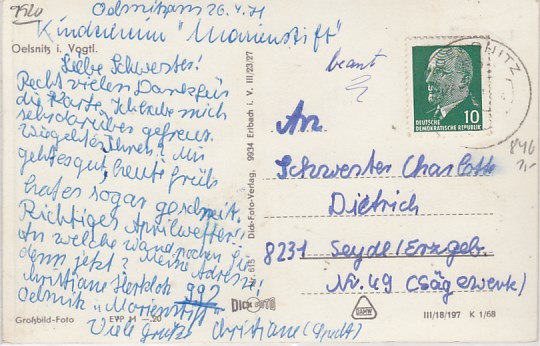 7920
Oelsnitz am 26.4.71
Kinderheim "Marienstift"
Oelsnitz i. Vogtl.
Liebe Schwester!
Recht vielen Dank für
die Karte. Ich habe mich
sehr darüber gefreut.
Wie geht es Ihnen? Mir
geht es gut, heute früh
hat es sogar geschneit.
Richtiges Aprilwetter!
An welche Wand
denn jetzt? Meine Adresse:
Christiane
Oelsnitz "Marienstift" 992
Viele Grüße Christiane
Großbild-Foto
EVP M —,20
615 Dick-Foto-Verlag, 9934 Erlbach i. V. III/23/27
DICK FOTO
beant
NITZ
DEUTSCHE
DEMOKRATISCHE REPUBLIK
10
An
Schwester Charlotte
Dietrich
8231 Seyde/Erzgeb.
Nr. 49 (Sägewerk)
846
1,-
III/18/197 K 1/68